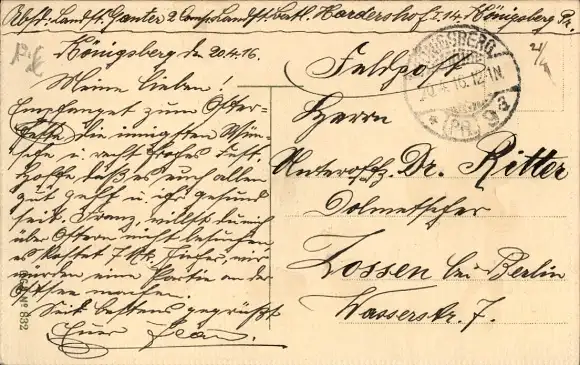 Absd. Landst. Ganter 2. Comp. Landst. Batl. Hardershof I. 14. Königsberg Pr.
Königsberg den 20.4.16.
Meine Lieben!
Empfanget zum Oster-
feste die innigsten Wün-
sche u. recht frohes Fest.
Hoffe daß es euch allen
gut geht u. ihr gesund
seid. Franz, willst du mich
über Ostern nicht besuchen
es kostet 7 Mk. hieher, wir
würden eine Partie an der
Ostsee machen.
Seid bestens gegrüßt
Euer
Feldpost
KÖNIGSBERG
20.4.16. 12-1N.
* (PR.) 9
Herrn
Unteroffz. Dr. Ritter
Dolmetscher
Zossen bei Berlin
Wasserstr. 7.
Nº 832